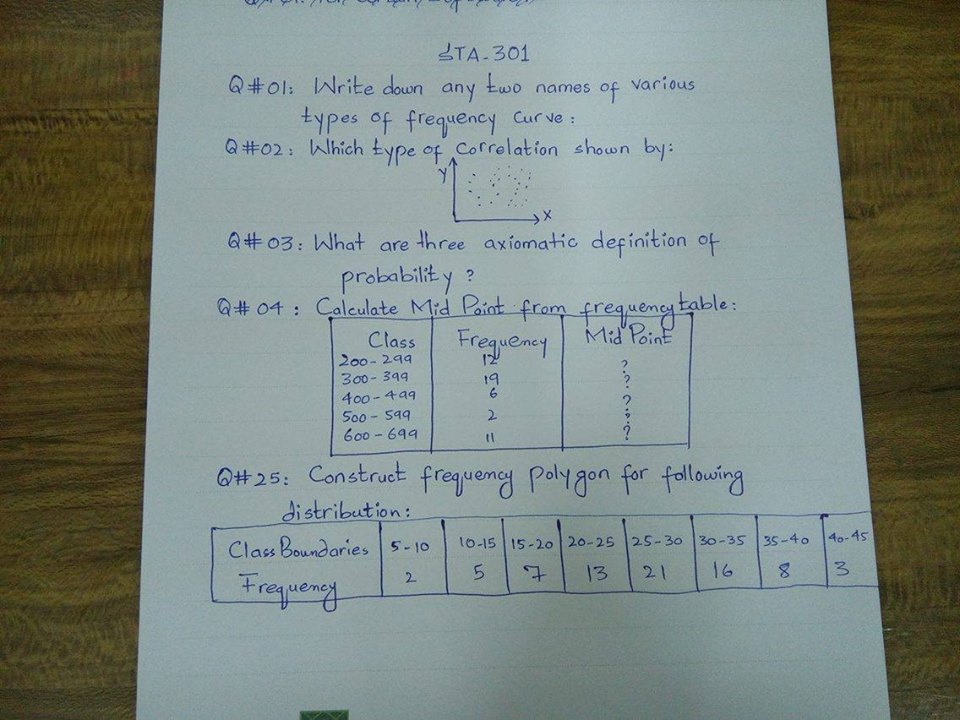 STA-301
Q#01: Write down any two names of various
types of frequency curve:
Q#02: Which type of correlation shown by:
Y
X
Q#03: What are three axiomatic definition of
probability ?
Q#04: Calculate Mid Point from frequency table:
Class Frequency Mid Point
200-299 12 ?
300-399 19 ?
400-499 6 ?
500-599 2 ?
600-699 11 ?
Q#25: Construct frequency polygon for following
distribution:
Class Boundaries 5-10 10-15 15-20 20-25 25-30 30-35 35-40 40-45
Frequency 2 5 7 13 21 16 8 3